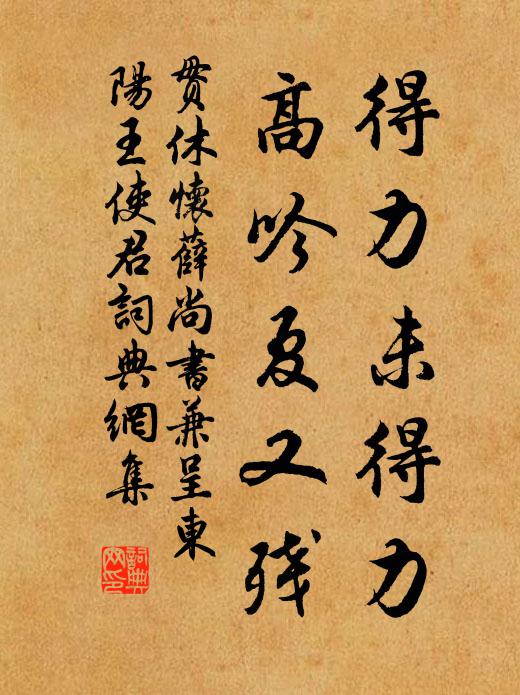 得力未得力
高吟夏又残
贯休懷薛尚書兼呈東
陽王使君詞典網集
詞典網印